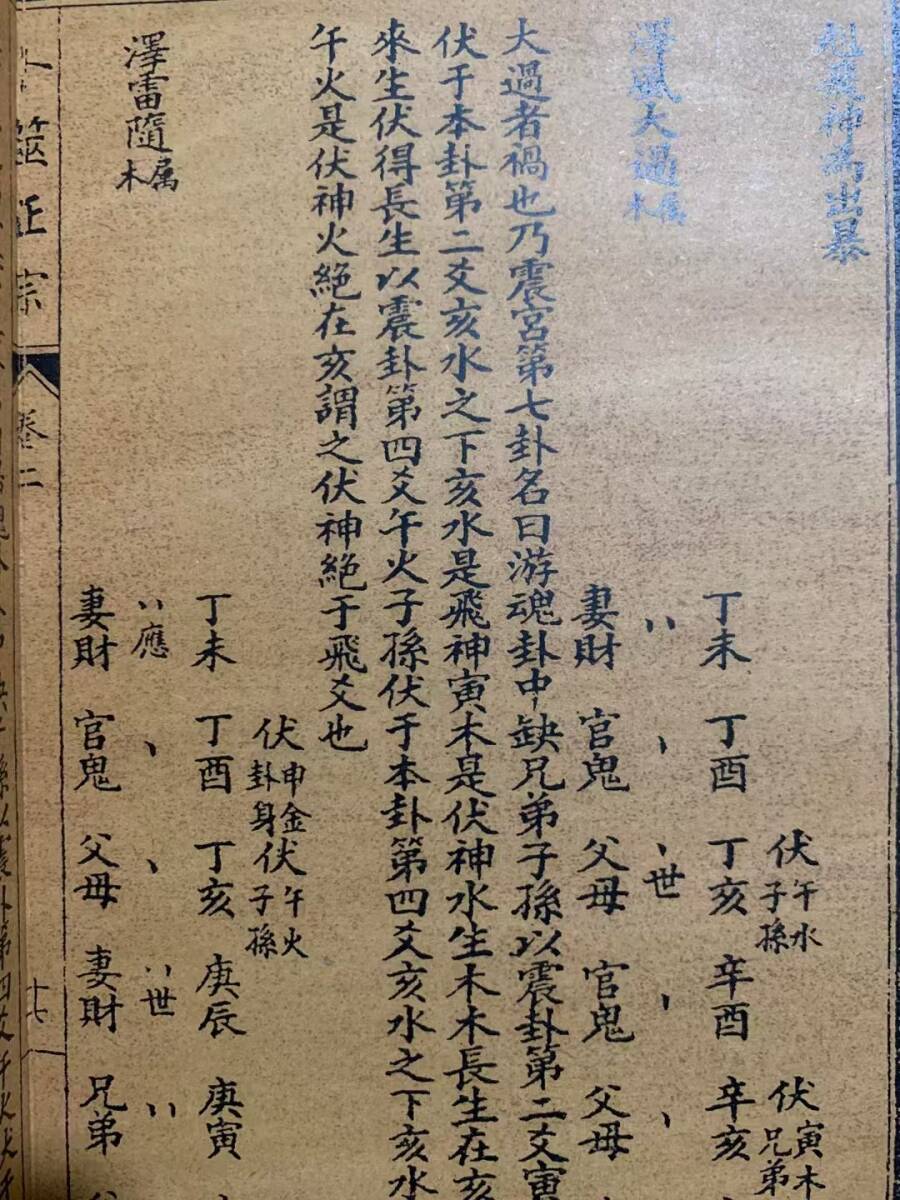 尅飛神為出暴
澤風大過属木
伏午水子孫
伏寅木兄弟
丁未 丁酉 丁亥 辛酉 辛亥
世
妻財 官鬼 父母 官鬼 父母
大過者禍也乃震宮第七卦名曰游魂卦中缺兄弟子孫以震卦第二爻寅
伏于本卦第二爻亥水之下亥水是飛神寅木是伏神水生木木長生在亥
來生伏得長生以震卦第四爻午火子孫伏于本卦第四爻亥水之下亥水
午火是伏神火絕在亥謂之伏神絕于飛爻也
澤雷隨属木
伏申金卦身
伏午火子孫
丁未 丁酉 丁亥 庚辰 庚寅
應 世
妻財 官鬼 父母 妻財 兄弟
筮正宗
卷二
十七